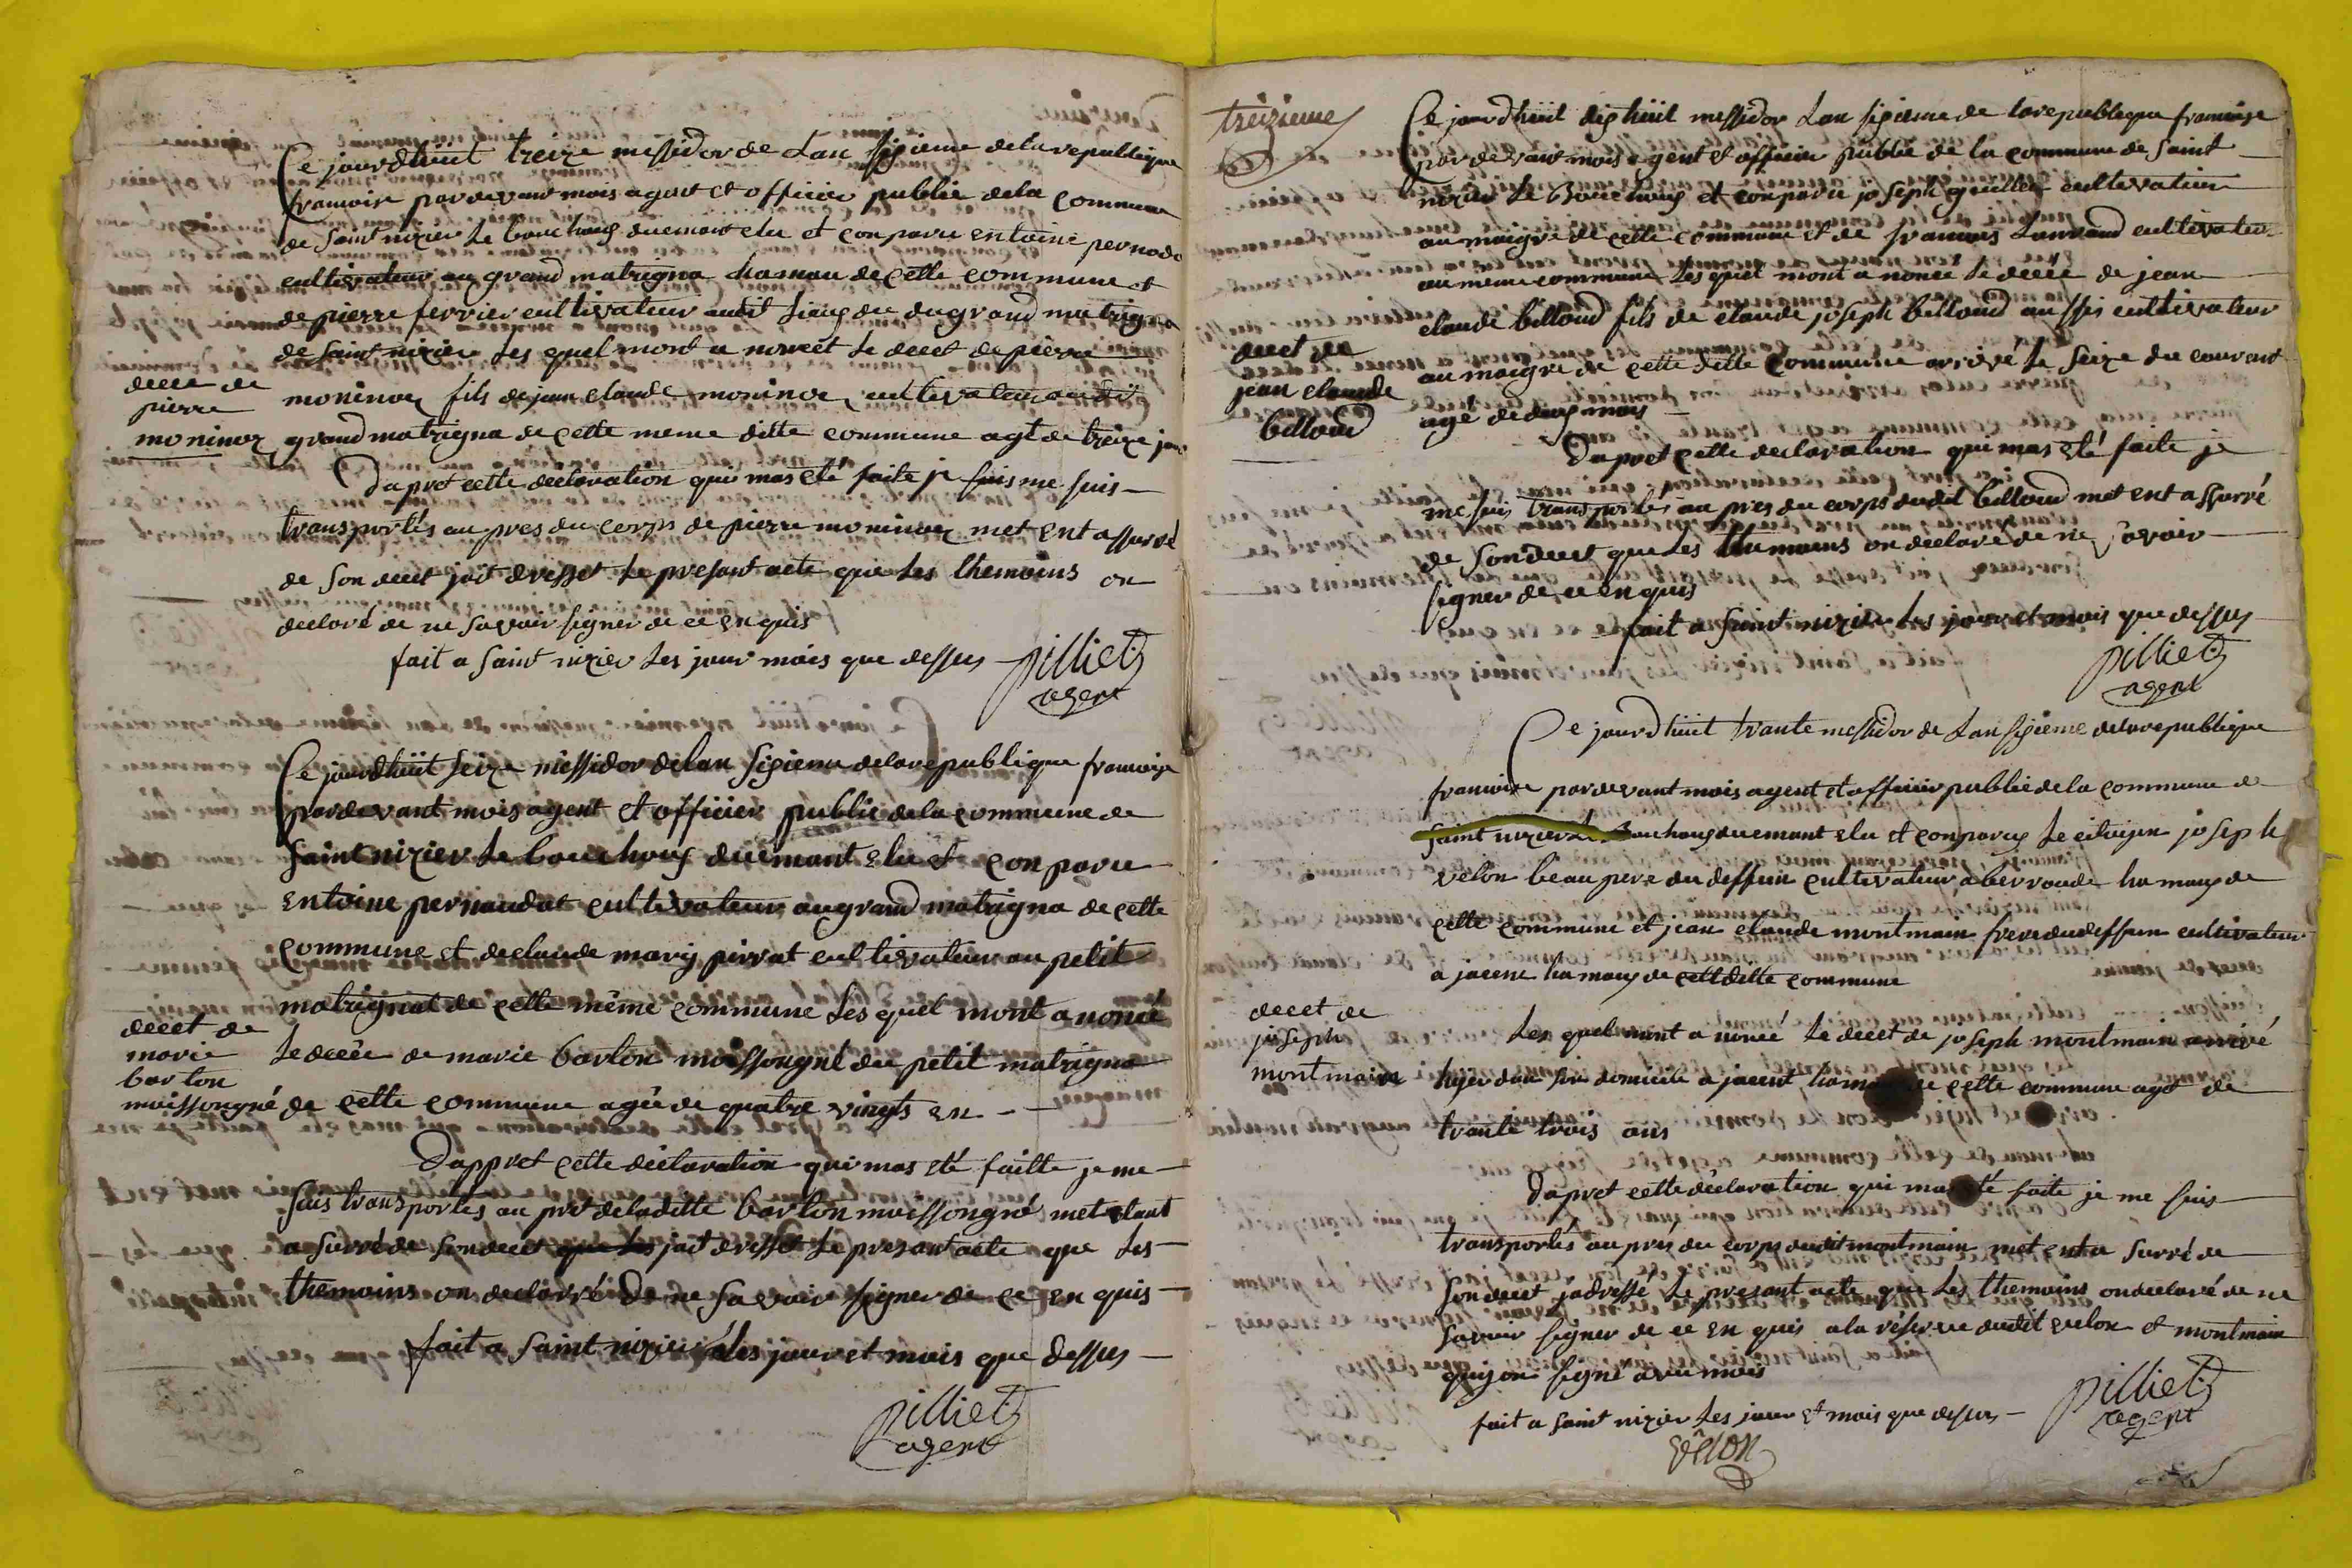 Ce jourdhuit treize messidor de Lan sixieme dela republique
francoise pardevant mois agent et officier public dela commune
de saint nizier le bouchoux duemant elu et conparu entoine pernodat
cultivateur au grand matrigna hamau de cette commune et
de pierre ferrier cultivateur audit lieux du dugrand matrigna
de saint nizier les quel mont a noncét le decet de pierre
decee de
pierre
moninox
moninox fils de jean claude moninox cultivateur audit
grand matrigna de cette meme ditte commune agé de treize jour
Dapret cette declaration qui mas eté faite je suis me suis
transportés au pres du corps de pierre moninox met ent assurré
de son decet jait dresset le presant acte que les themoins on
declaré de ne savoir signer de ce en quis
fait a saint nizier les jour mois que dessus
pilliet
agent
Ce jourdhuit seize messidor delan sixieme delarepublique francoise
pardevant mois agent et officier public dela commune de
saint nizier le bouchoux duemant elu et conparu
entoine pernaudat cultivateur augrand matrigna de cette
commune et declaude marij pirrat cultivateur au petit
matrignat de cette même commune les quel mont a noncé
decet de
marie
barlon
moissongné
le decée de marie barlon moissongné du petit matrigna
de cette commune agée de quatre vingts en
Dappret cette déclaration qui mas eté faitte je me
suis transportés au pré deladitte barlon moissongné met etant
a surré de son decet que les jait dresset le presant acte que les
themoins on declarré de ne savoir signer de ce en quis
fait a saint nizier les jour et mois que dessus
pilliet
agent
treizieme
Ce jourdhuit dix huit messidor Lan sixieme de larepublique francoise
pardevant mois agent et officier public de la commune de saint
nizier le bouchoux et conparu joseph guillet cultivateur
au maigre de cette commune et de francois Lauraud cultivateur
au meme commune les quel mont a noncé le decee de jean
claude billoud fils de claude joseph billoud aussis cultivateur
decet de
jean claude
billoud
au maigre de cette ditte commune arrivé le seize du courant
agé de deux mois
Dapret cette declaration qui mas eté faite je
me suis transportés au pres du corps dudit billoud met ent assurré
de son decet que les themoins on declaré de ne savoir
signer de ce en quis
fait a saint nizier les jour et mois que dessus
pilliet
agent
Ce jourdhuit trante messidor de Lan sixieme delarepublique
francoise pardevant mois agent et officier public dela commune de
saint nizier le bouchoux duemant elu et conparus le citoijen joseph
vèlon beau pere du deffun cultivateur a berroude hamaux de
cette commune et jean claude montmain frere dudeffun cultivateur
a jacene hamaux de cett ditte commune
decet de
joseph
montmain
Les quel mont a noncé le decet de joseph montmain arrivé
hyer dan son domicile a jacent hama de cette commune agé de
trante trois ans
Dapret cette déclaration qui mas eté faite je me suis
transportés au pres du corps dudit montmain met ent a surré de
son decet jadressé le presant acte que les themoins ondeclaré de ne
savoir signer de ce en quis a la réserve dudit vèlon et montmain
quijon signé avec mois
fait a saint nizier les jour et mois que dessus
pilliet
agent
vêlon